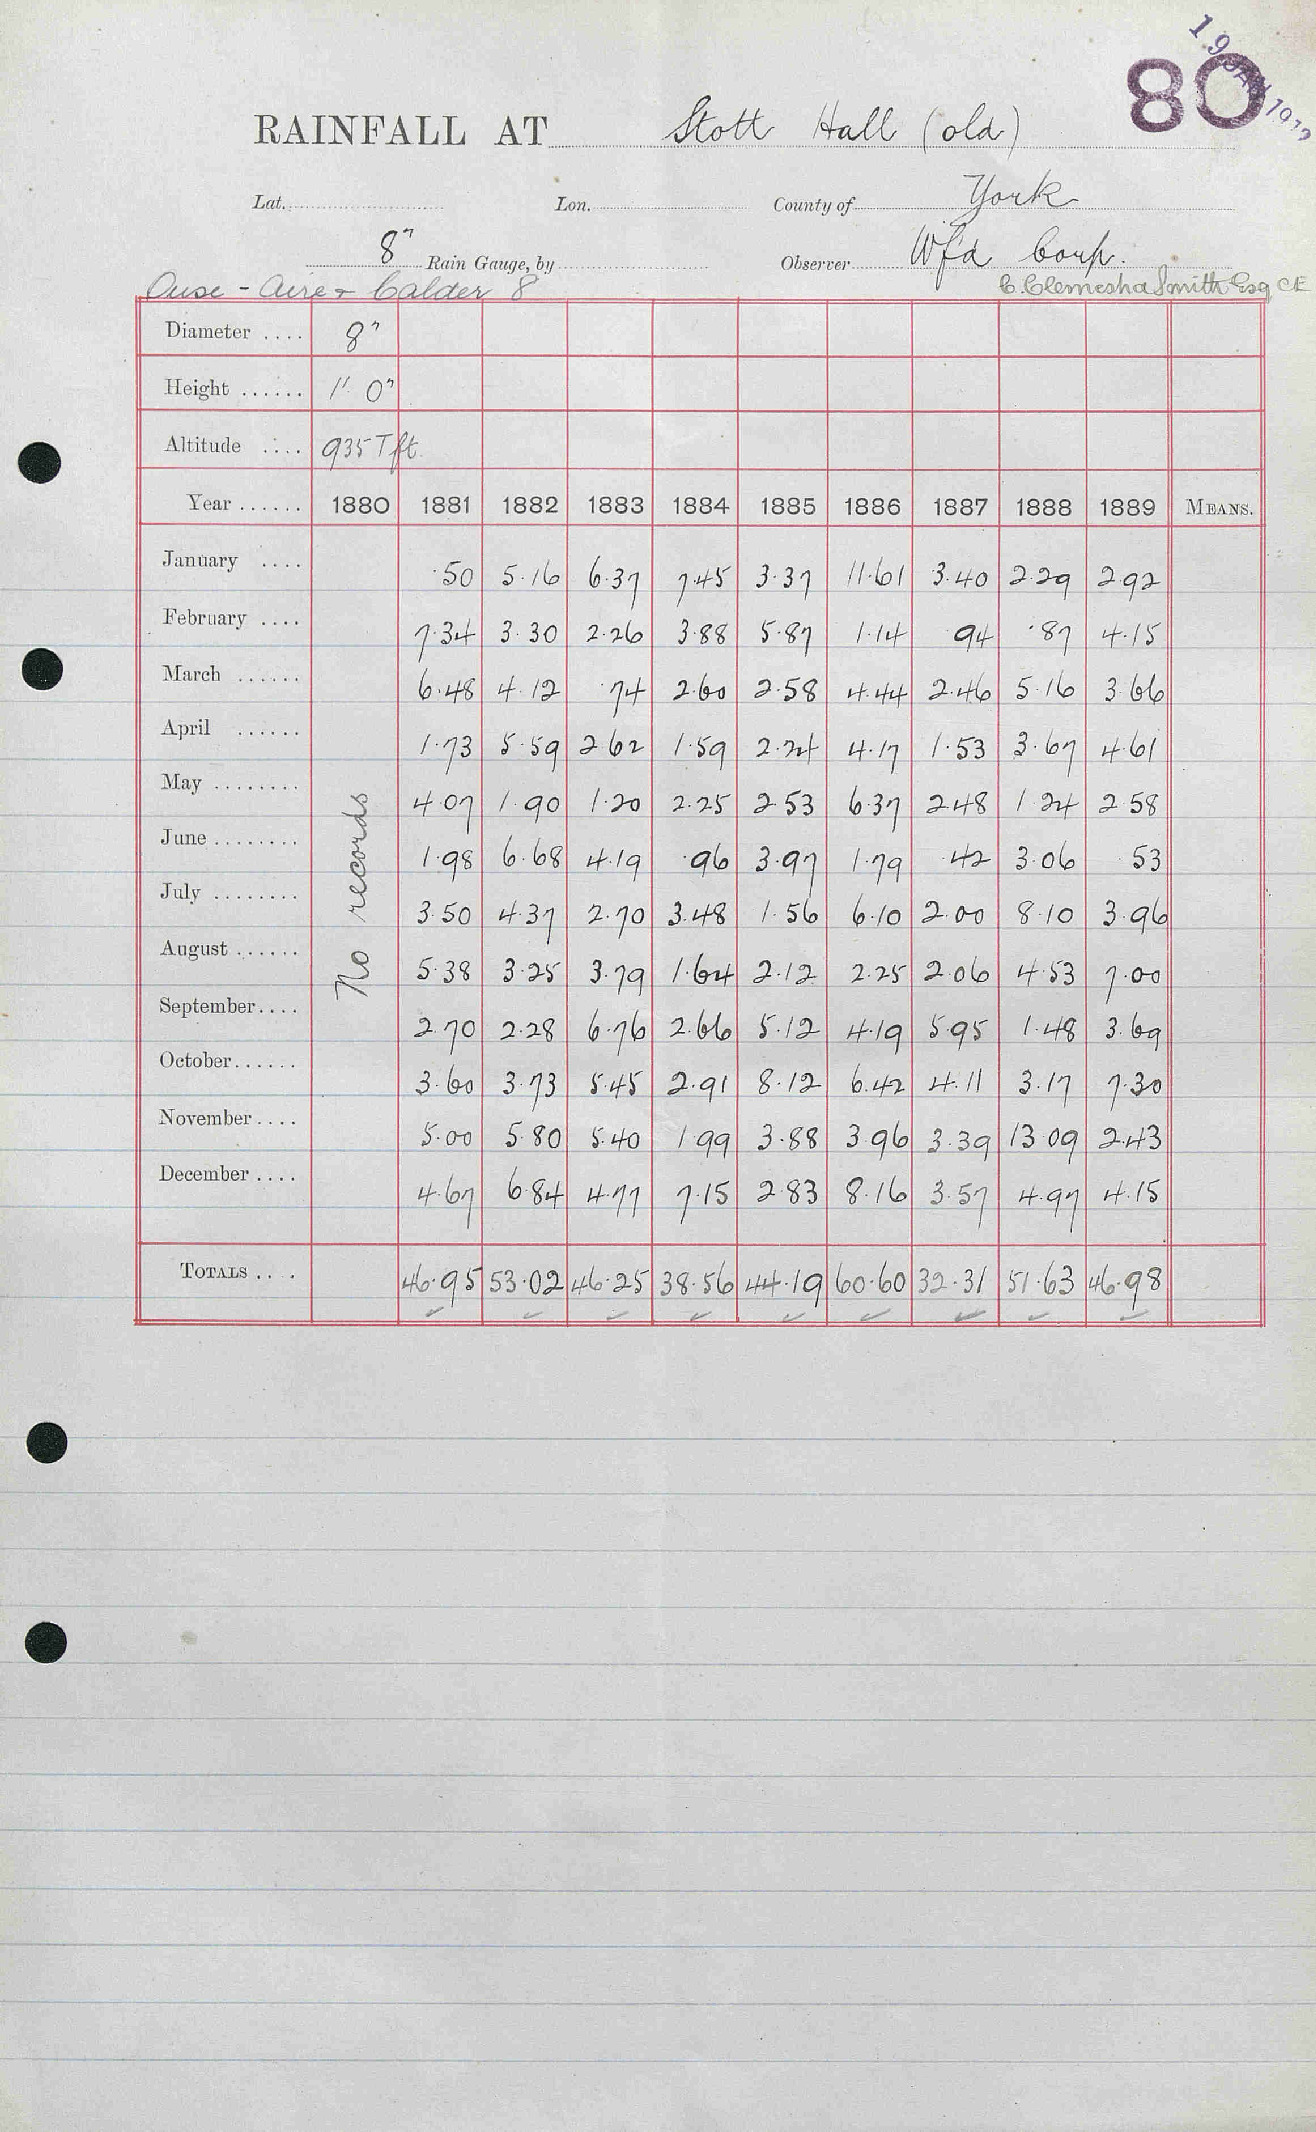 19 JAN 1912
80
RAINFALL AT Stott Hall (old)
Lat. Lon. County of York
8" Rain Gauge, by Observer Wf'd Corp.
Ouse - Aire & Calder 8 C. Clemesha Smith Esq CE
Diameter .... 8"
Height ...... 1' 0"
Altitude .... 935 T ft.
Year ...... 1880 1881 1882 1883 1884 1885 1886 1887 1888 1889 MEANS.
January .... ·50 5·16 6·37 7·45 3·37 11·61 3·40 2·29 2·92
February .... 7·34 3·30 2·26 3·88 5·87 1·14 94 ·87 4·15
March ...... 6·48 4·12 ·74 2·60 2·58 4·44 2·46 5·16 3·66
April ...... 1·73 5·59 2·62 1·59 2·24 4·17 1·53 3·67 4·61
May ........ 4·07 1·90 1·20 2·25 2·53 6·37 2·48 1·24 2·58
June ........ 1·98 6·68 4·19 ·96 3·97 1·79 ·42 3·06 53
July ........ 3·50 4·37 2·70 3·48 1·56 6·10 2·00 8·10 3·96
August ...... 5·38 3·25 3·79 1·64 2·12 2·25 2·06 4·53 7·00
September .... 2·70 2·28 6·76 2·66 5·12 4·19 5·95 1·48 3·69
October ...... 3·60 3·73 5·45 2·91 8·12 6·42 4·11 3·17 7·30
November .... 5·00 5·80 5·40 1·99 3·88 3·96 3·39 13·09 2·43
December .... 4·67 6·84 4·77 7·15 2·83 8·16 3·57 4·97 4·15
No records
TOTALS .. . 46·95 53·02 46·25 38·56 44·19 60·60 32·31 51·63 46·98